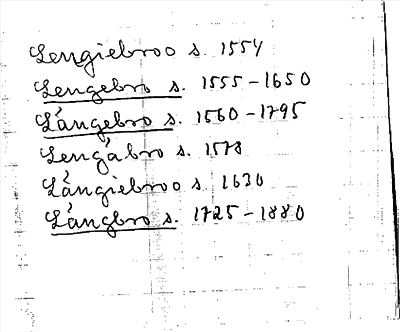 Lengiebroo s. 1554
Lengebro s. 1555-1650
Långebro s. 1560-1795
Lengåbro s. 1578
Långiebroo s. 1630
Långbro s. 1725-1880